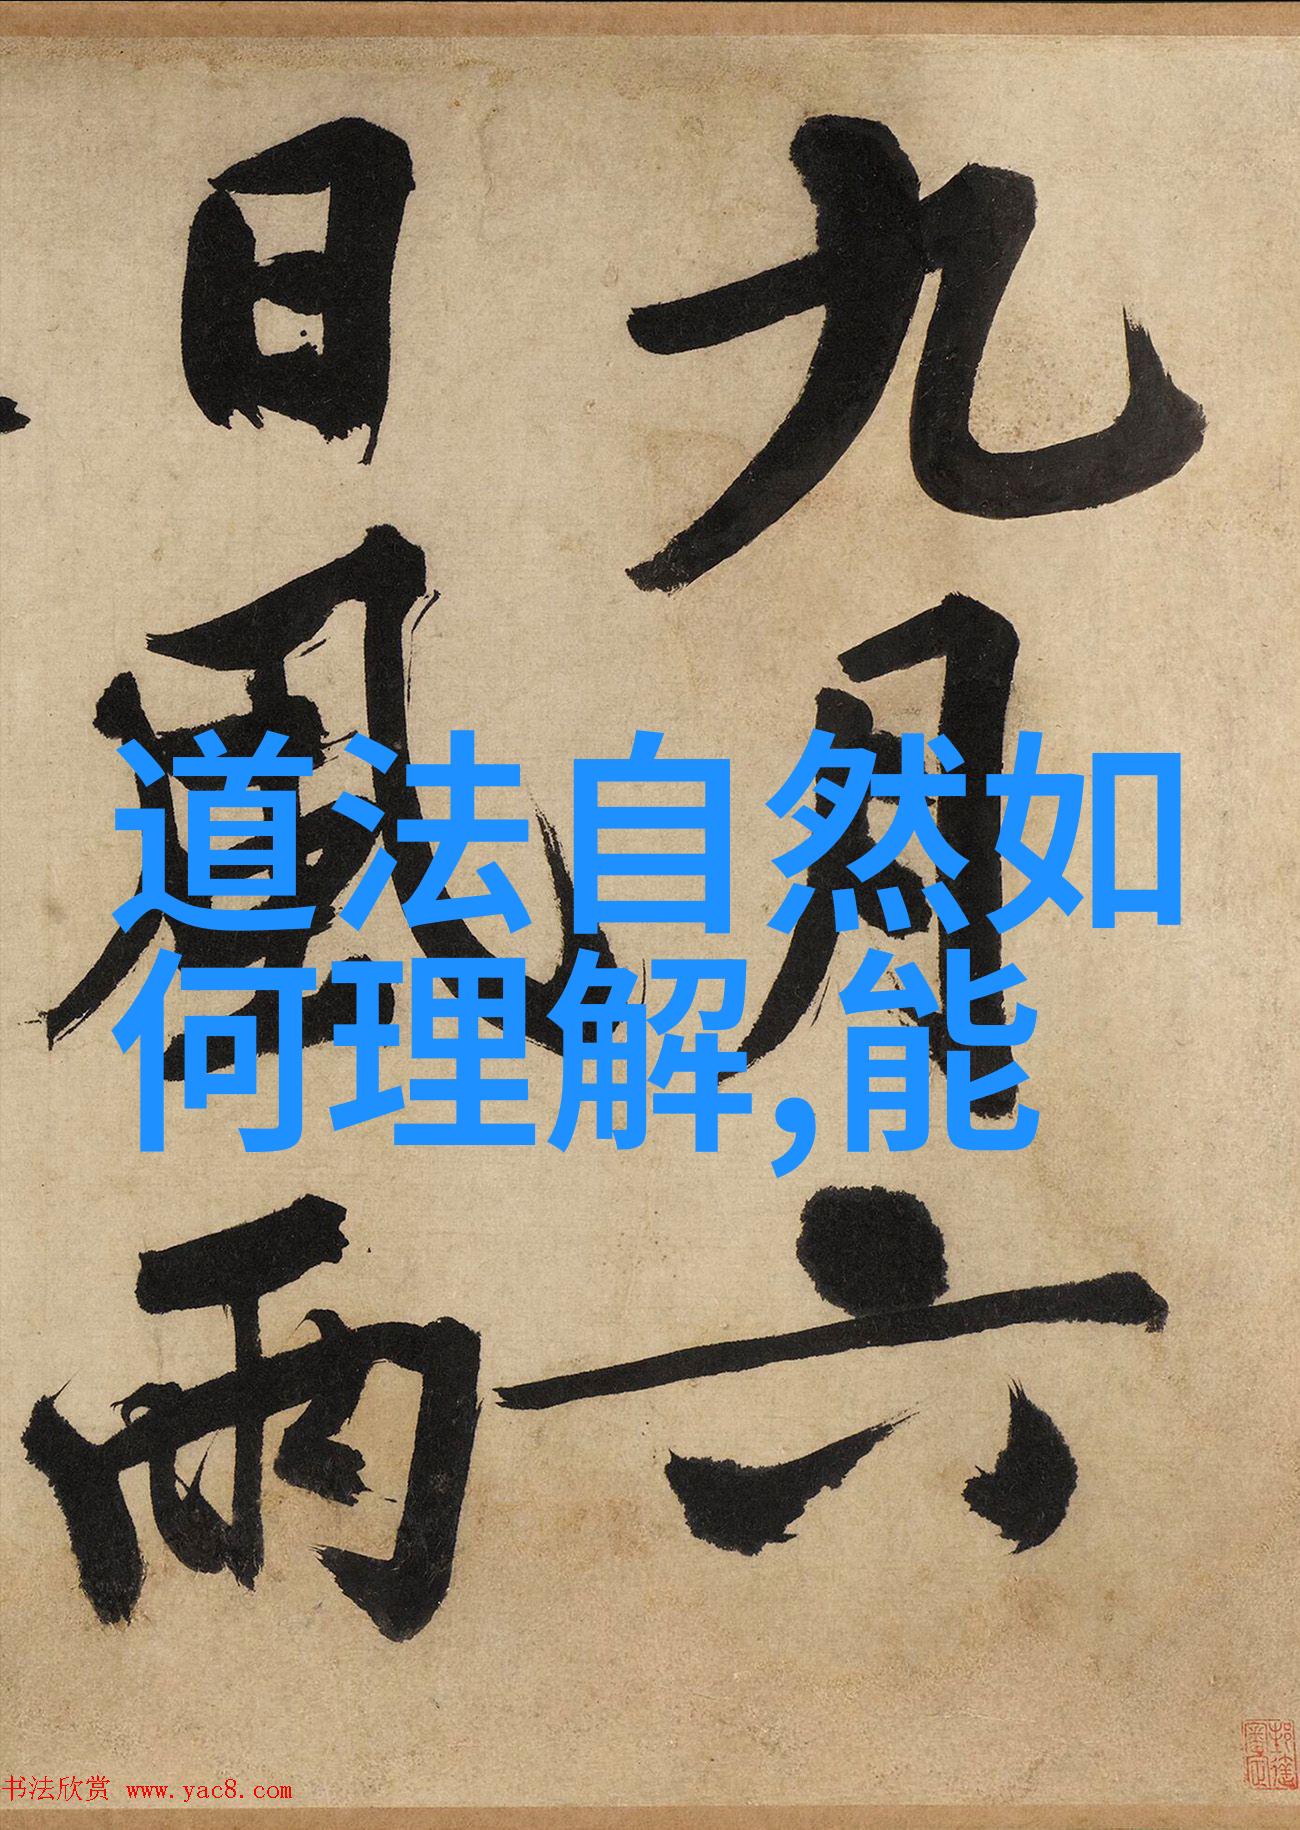 九月六
日風雨
道法自然如
何理解,能
书法欣赏 www.yac8.com